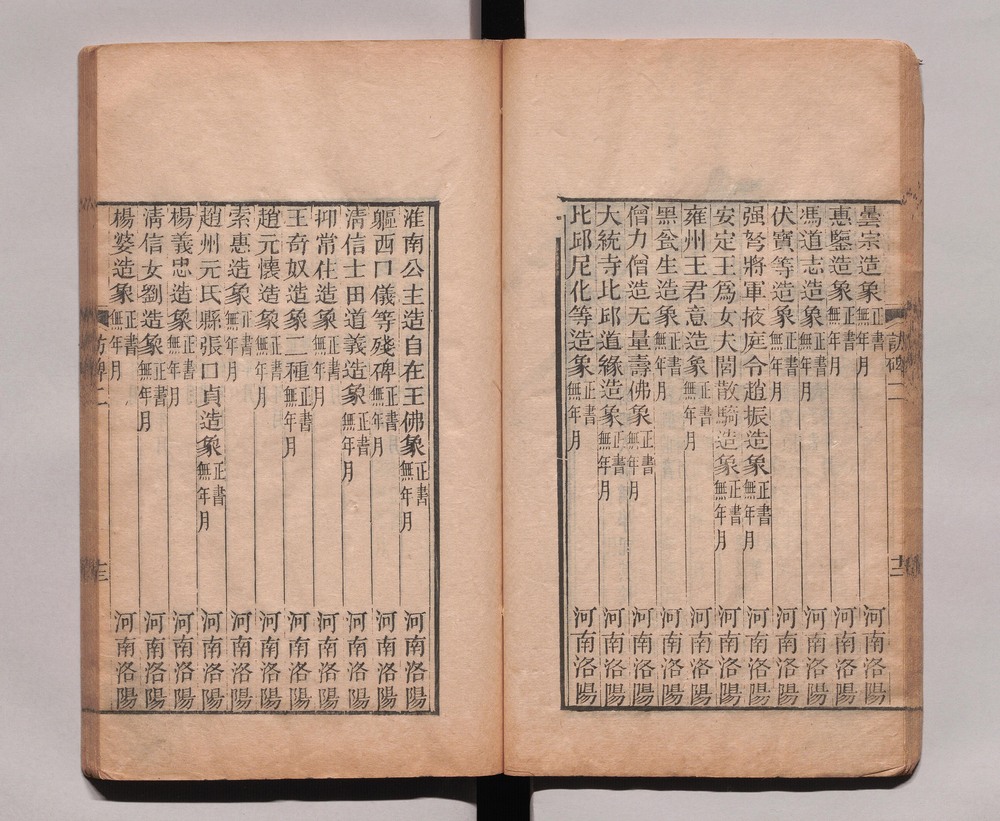 曇宗造象正書無年月 河南洛陽
惠鑒造象正書無年月 河南洛陽
馮道志造象正書無年月 河南洛陽
伏寶等造象正書無年月 河南洛陽
强弩將軍掖庭令趙振造象正書無年月 河南洛陽
安定王爲女夫閻散騎造象正書無年月 河南洛陽
雍州王君意造象正書無年月 河南洛陽
黑瓮生造象正書無年月 河南洛陽
僧力僧造无量壽佛象正書無年月 河南洛陽
大統寺比邱道緣造象正書無年月 河南洛陽
比邱尼化等造象正書無年月 河南洛陽
訪碑二
十二
淮南公主造自在王佛象正書無年月 河南洛陽
軀西口儀等殘碑正書無年月 河南洛陽
清信士田道義造象正書無年月 河南洛陽
抑常住造象正書無年月 河南洛陽
王奇奴造象二種正書無年月 河南洛陽
趙元懷造象正書無年月 河南洛陽
索惠造象正書無年月 河南洛陽
趙州元氏縣張口貞造象正書無年月 河南洛陽
楊義忠造象正書無年月 河南洛陽
清信女劉造象正書無年月 河南洛陽
楊婆造象正書無年月 河南洛陽
訪碑二
十三